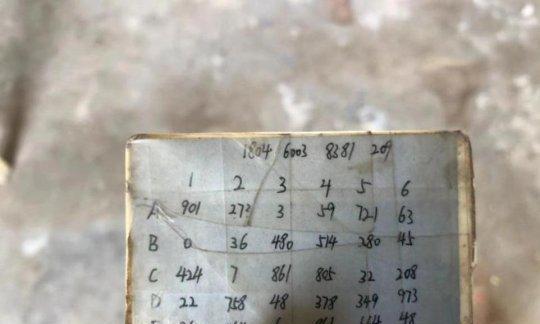 1804 6003 8381 209
1 2 3 4 5 6
A 901 273 3 59 721 63
B 0 36 480 514 280 45
C 424 7 861 805 32 208
D 22 758 48 378 349 973
48